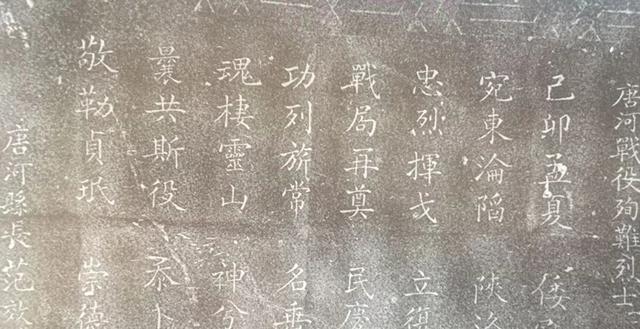 唐河戰役殉難烈士
己卯孟夏 倭
宛東淪陷 陝洛
忠烈揮戈 立復
戰局再奠 民慶
功列旂常 名垂
魂棲靈山 神兮
曩共斯役 忝
敬勒貞珉 崇德
唐河縣長范效